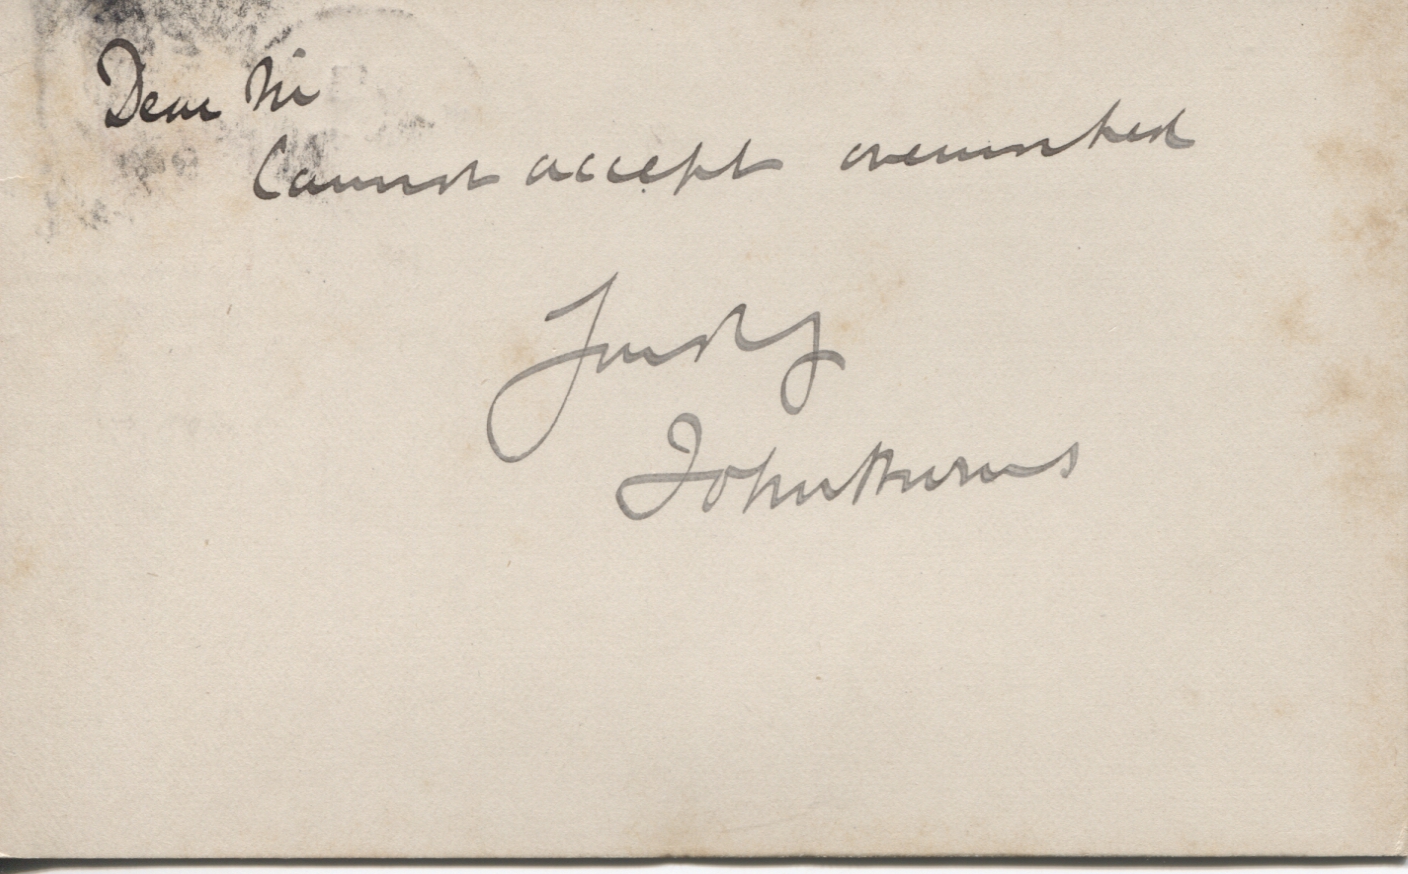 Dear Sir
Cannot accept overworked
Truly
John Burns